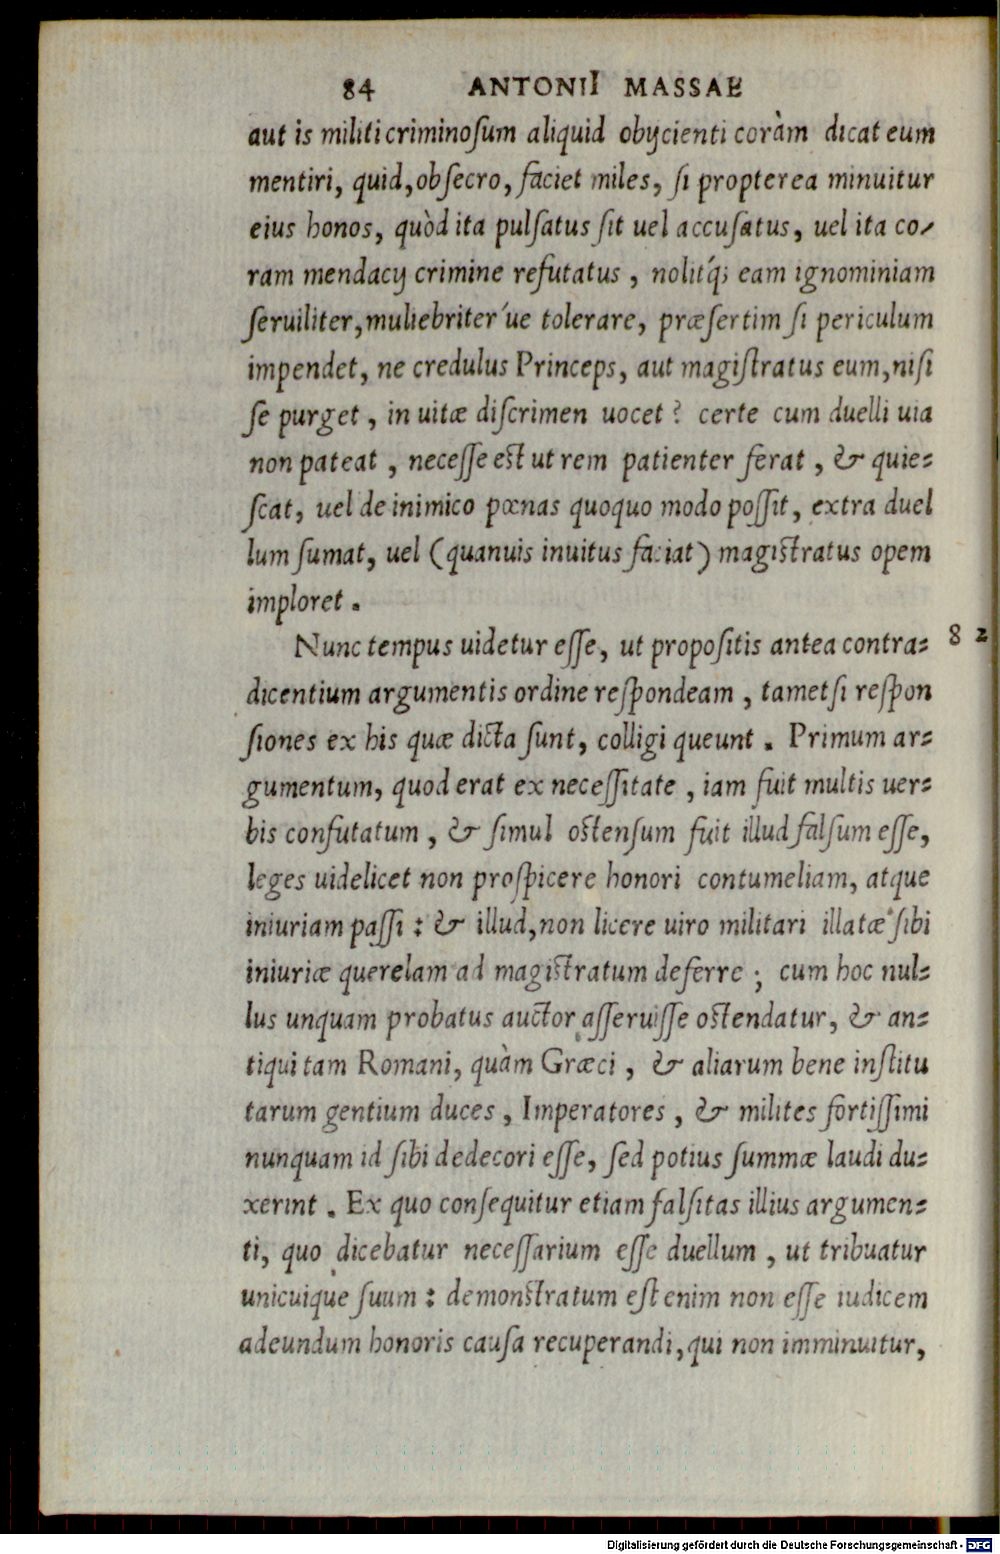 84 ANTONII MASSAE
aut is militi criminoſum aliquid obijcienti coràm dicat eum
mentiri, quid, obſecro, faciet miles, ſi propterea minuitur
eius honos, quòd ita pulſatus ſit uel accuſatus, uel ita co-
ram mendacij crimine refutatus, nolitq́; eam ignominiam
ſeruiliter, muliebriter´ue tolerare, præſertim ſi periculum
impendet, ne credulus Princeps, aut magiſtratus eum, niſi
ſe purget, in uitæ diſcrimen uocet? certe cum duelli uia
non pateat, neceſſe eſt ut rem patienter ferat, & quie=
ſcat, uel de inimico pœnas quoquo modo poſſit, extra duel
lum ſumat, uel (quanuis inuitus faciat) magiſtratus opem
imploret.
Nunc tempus uidetur eſſe, ut propoſitis antea contra= 82
dicentium argumentis ordine reſpondeam, tametſi reſpon
ſiones ex his quæ dicta ſunt, colligi queunt. Primum ar=
gumentum, quod erat ex neceſſitate, iam fuit multis uer=
bis confutatum, & ſimul oſtenſum fuit illud falſum eſſe,
leges uidelicet non proſpicere honori contumeliam, atque
iniuriam paſſi: & illud, non licere uiro militari illatæ ſibi
iniuriæ querelam ad magiſtratum deferre; cum hoc nul=
lus unquam probatus auctor aſſeruiſſe oſtendatur, & an=
tiqui tam Romani, quàm Græci, & aliarum bene inſtitu
tarum gentium duces, Imperatores, & milites fortiſſimi
nunquam id ſibi dedecori eſſe, ſed potius ſummæ laudi du=
xerint. Ex quo conſequitur etiam falſitas illius argumen=
ti, quo dicebatur neceſſarium eſſe duellum, ut tribuatur
unicuique ſuum: demonſtratum eſt enim non eſſe iudicem
adeundum honoris cauſa recuperandi, qui non imminuitur,
Digitalisierung gefördert durch die Deutsche Forschungsgemeinschaft - DFG